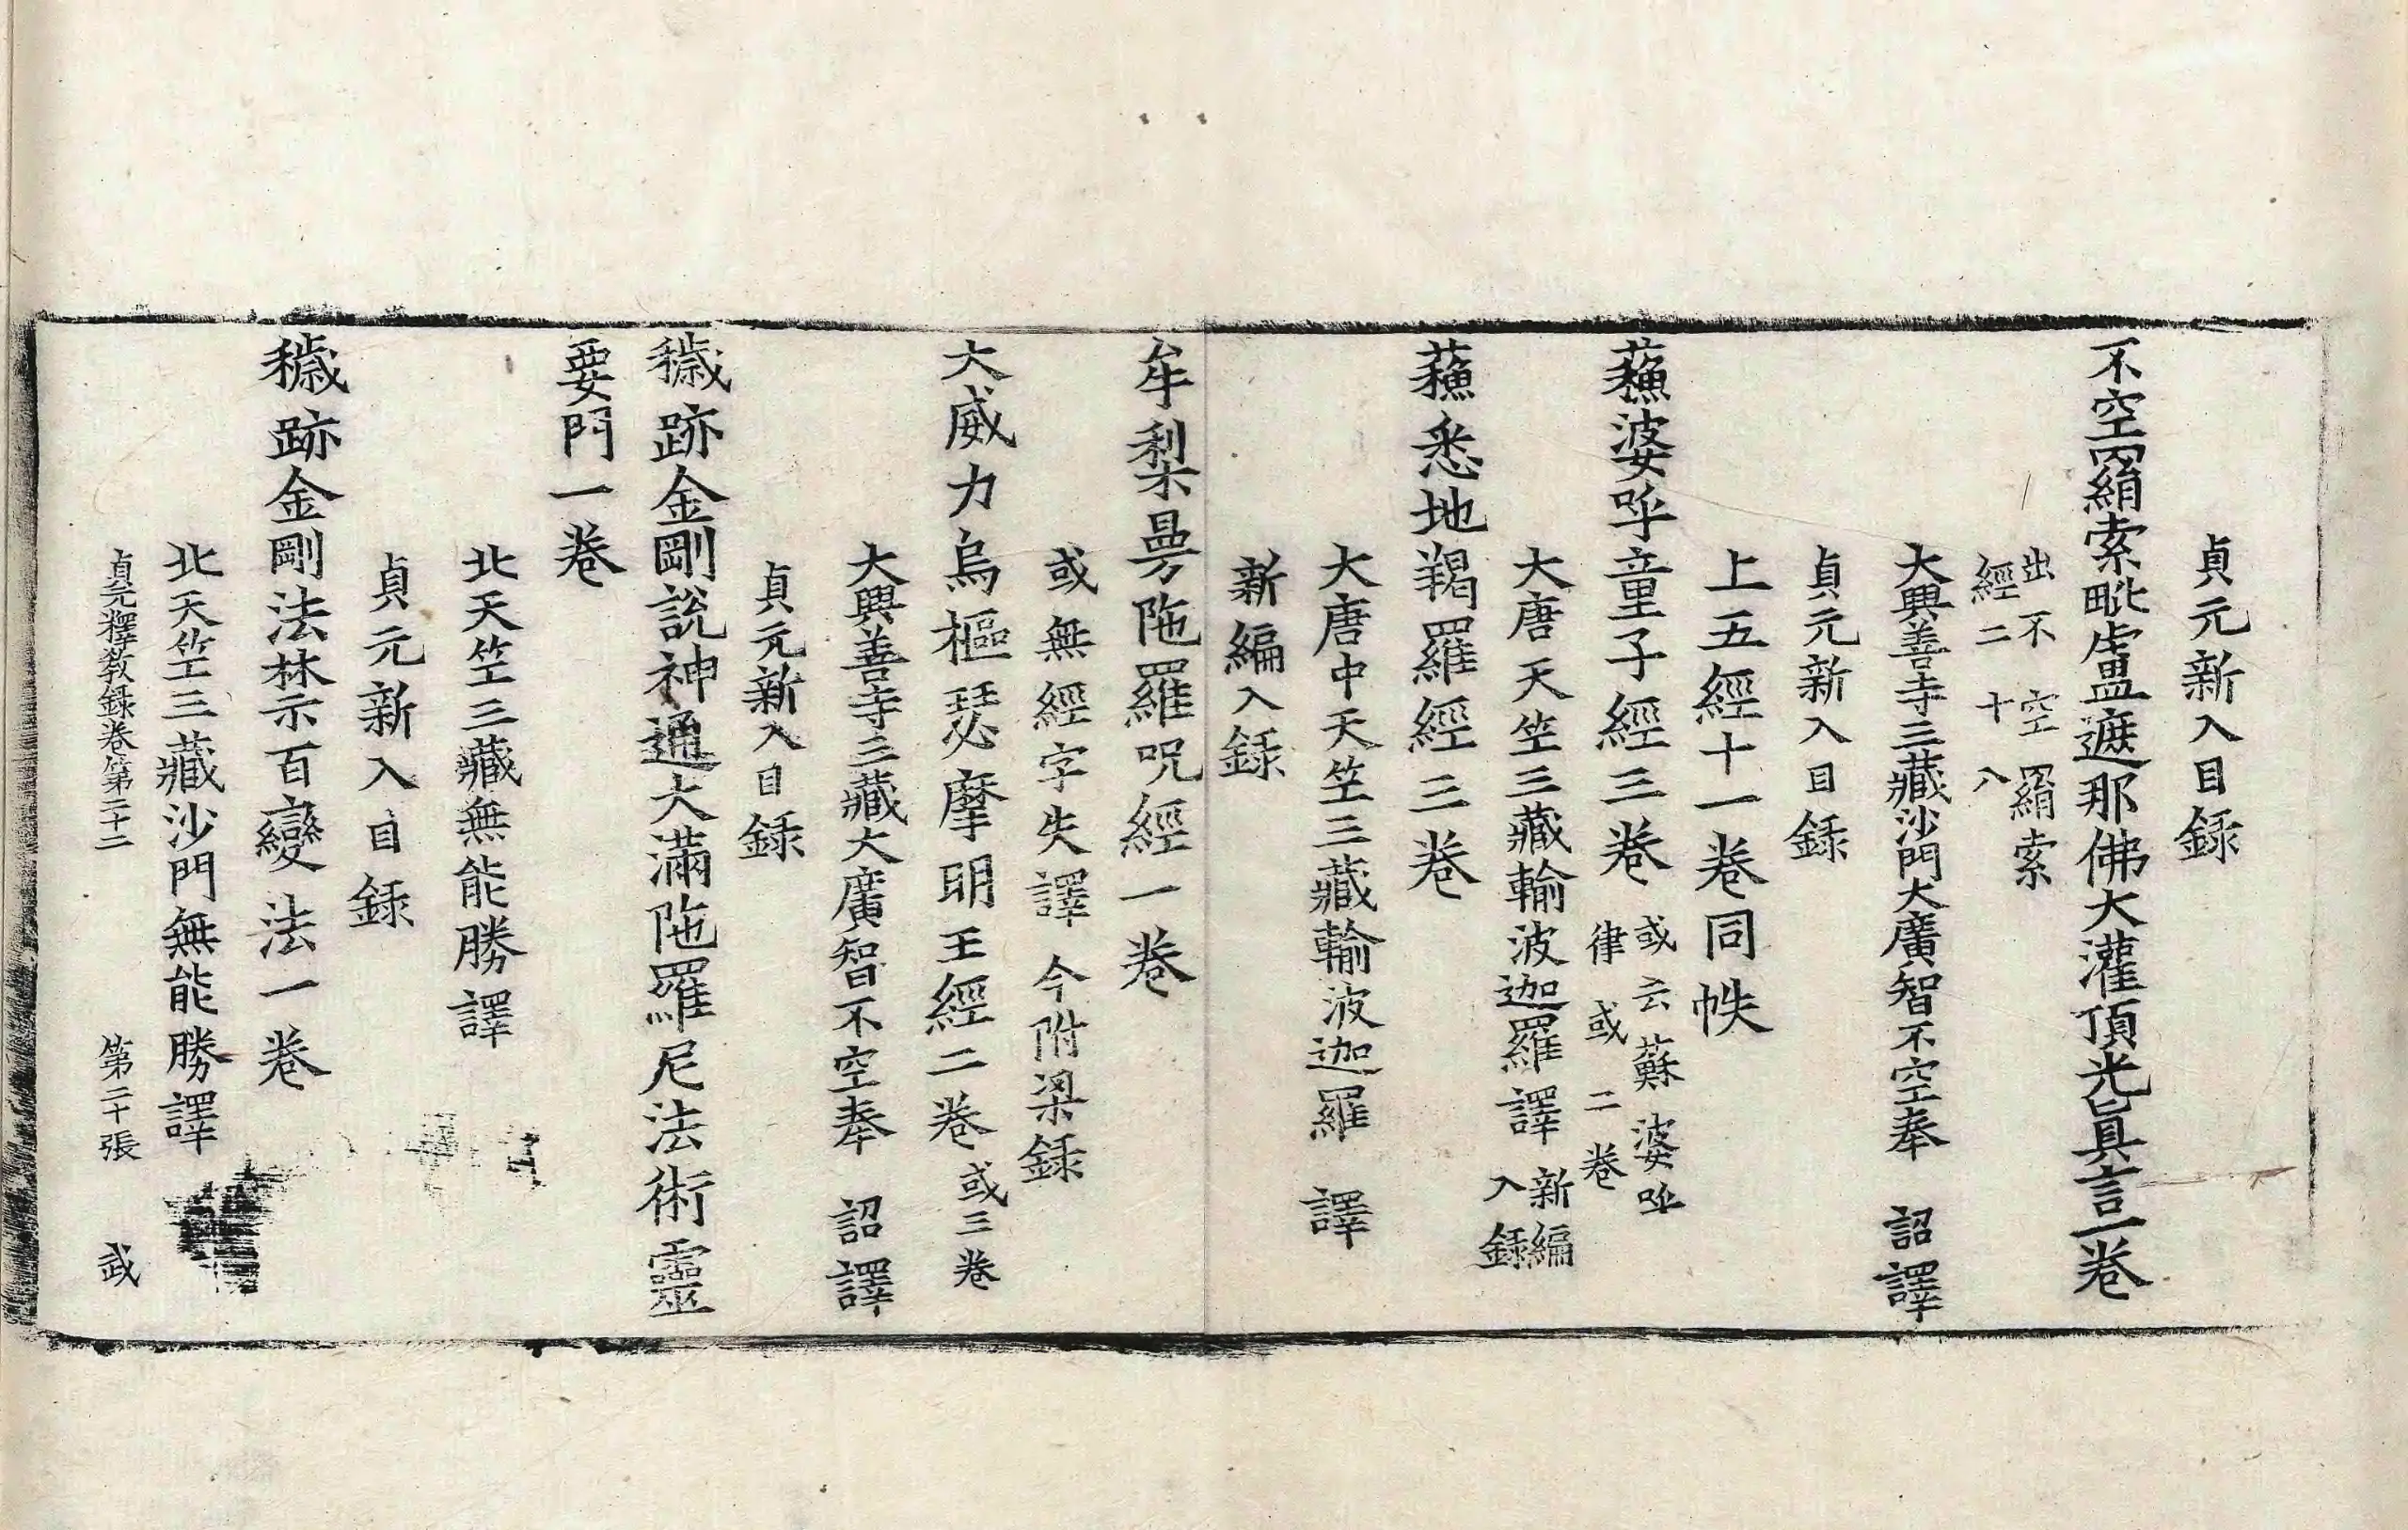 貞元新入目録
不空羂索毗盧遮那佛大灌頂光真言一卷
出不空羂索
經二十八
大興善寺三藏沙門大廣智不空奉　詔譯
貞元新入目録
上五經十一卷同帙
蘓婆呼童子經三卷
或云蘇婆呼
律或二卷
大唐天竺三藏輸波迦羅譯
新編
入録
蘓悉地羯羅經三卷
大唐中天竺三藏輸波迦羅　譯
新編入録
牟梨曼陁羅呪經一卷
或無經字失譯今附梁録
大威力烏樞瑟摩明王經二卷或三卷
大興善寺三藏大廣智不空奉　詔譯
貞元新入目録
穢跡金剛說神通大滿陁羅尼法術靈
要門一卷
北天竺三藏無能勝譯
貞元新入目録
穢跡金剛法禁示百變法一卷
北天竺三藏沙門無能勝譯
貞元釋教録卷第二十二　第二十張　武